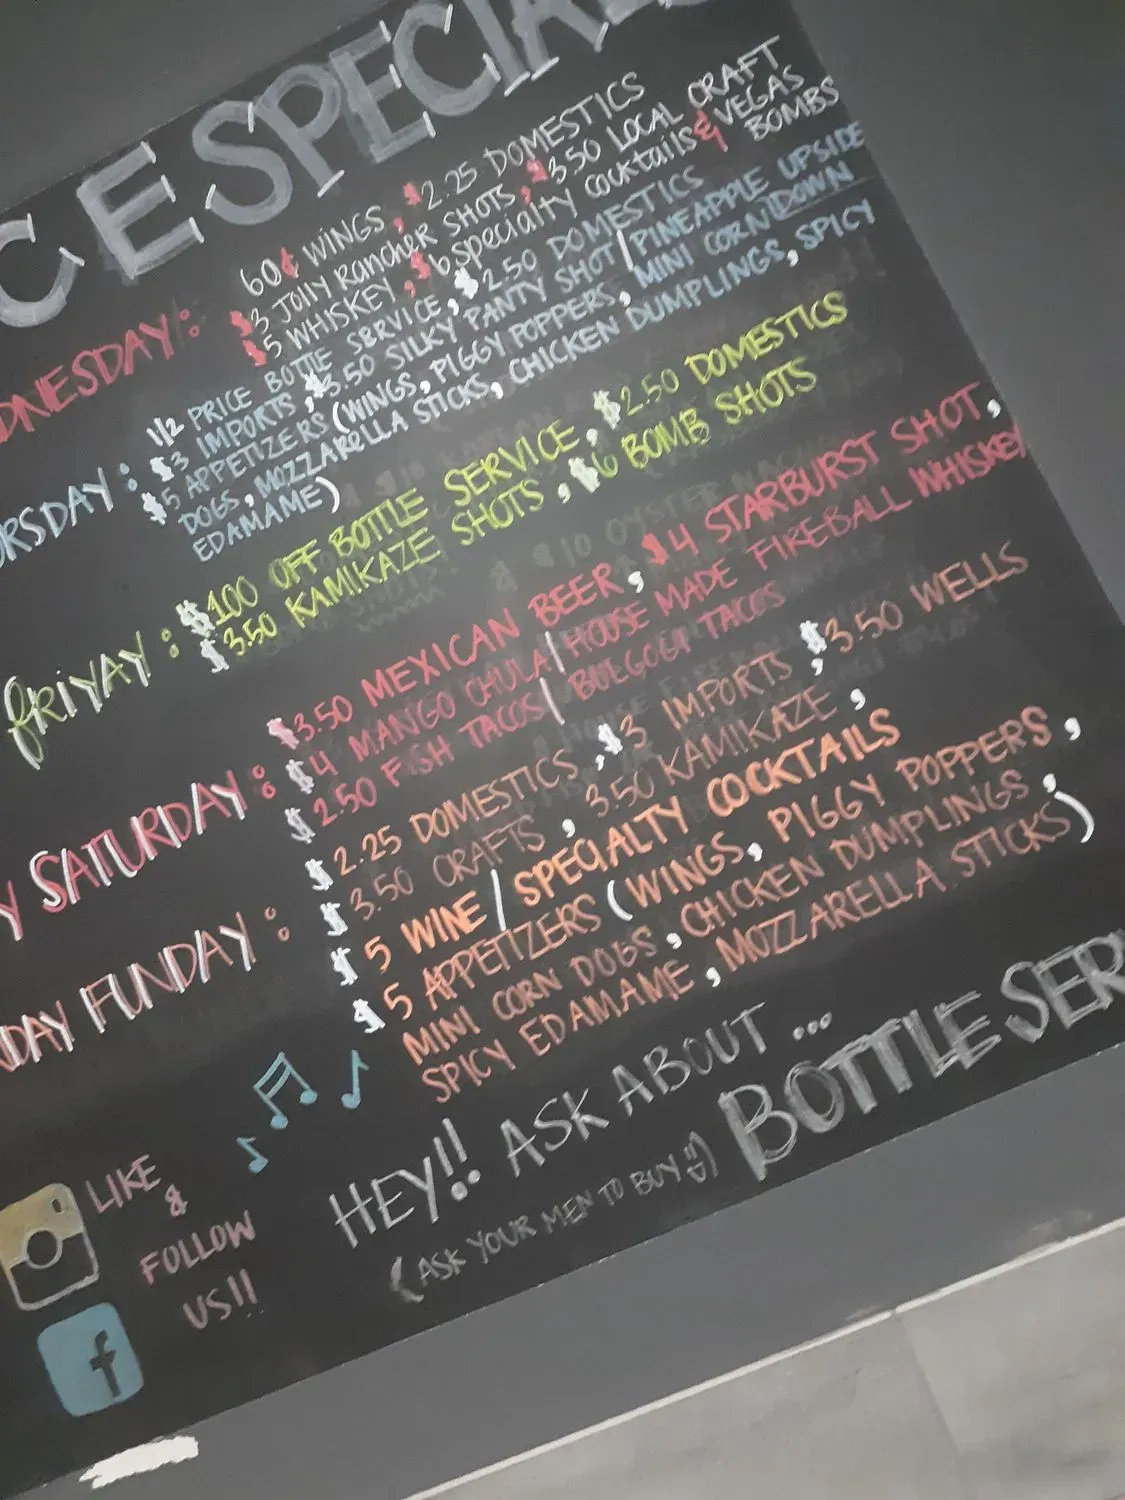 CE SPECIALS
DNESDAY: 60¢ WINGS, $2.25 DOMESTICS
$3 JOLLY RANCHER SHOTS, $3.50 LOCAL CRAFT
$5 WHISKEY, $6 Specialty Cocktails & VEGAS
BOMBS
RSDAY: 1/2 PRICE BOTTLE SERVICE, $2.50 DOMESTICS
$3 IMPORTS, $3.50 SILKY PANTY SHOT/PINEAPPLE UPSIDE
DOWN
$5 APPETIZERS (WINGS, PIGGY POPPERS, MINI CORN
DOGS, MOZZARELLA STICKS, CHICKEN DUMPLINGS, SPICY
EDAMAME)
fRiYAY: $100 OFF BOTTLE SERVICE, $2.50 DOMESTICS
$3.50 KAMIKAZE SHOTS, $6 BOMB SHOTS
Y SATURDAY: $3.50 MEXICAN BEER, $4 STARBURST SHOT,
$4 MANGO CHULA/HOUSE MADE FIREBALL WHISKEY
$2.50 FISH TACOS/BULGOGI TACOS
DAY FUNDAY: $2.25 DOMESTICS, $3 IMPORTS, $3.50 WELLS
$3.50 CRAFTS, 3.50 KAMIKAZE,
$5 WINE/SPECIALTY COCKTAILS
$5 APPETIZERS (WINGS, PIGGY POPPERS,
MINI CORN DOGS, CHICKEN DUMPLINGS,
SPICY EDAMAME, MOZZARELLA STICKS)
HEY!! ASK ABOUT...
BOTTLE SER
(ASK YOUR MEN TO BUY :))
LIKE
&
FOLLOW
US!!
f